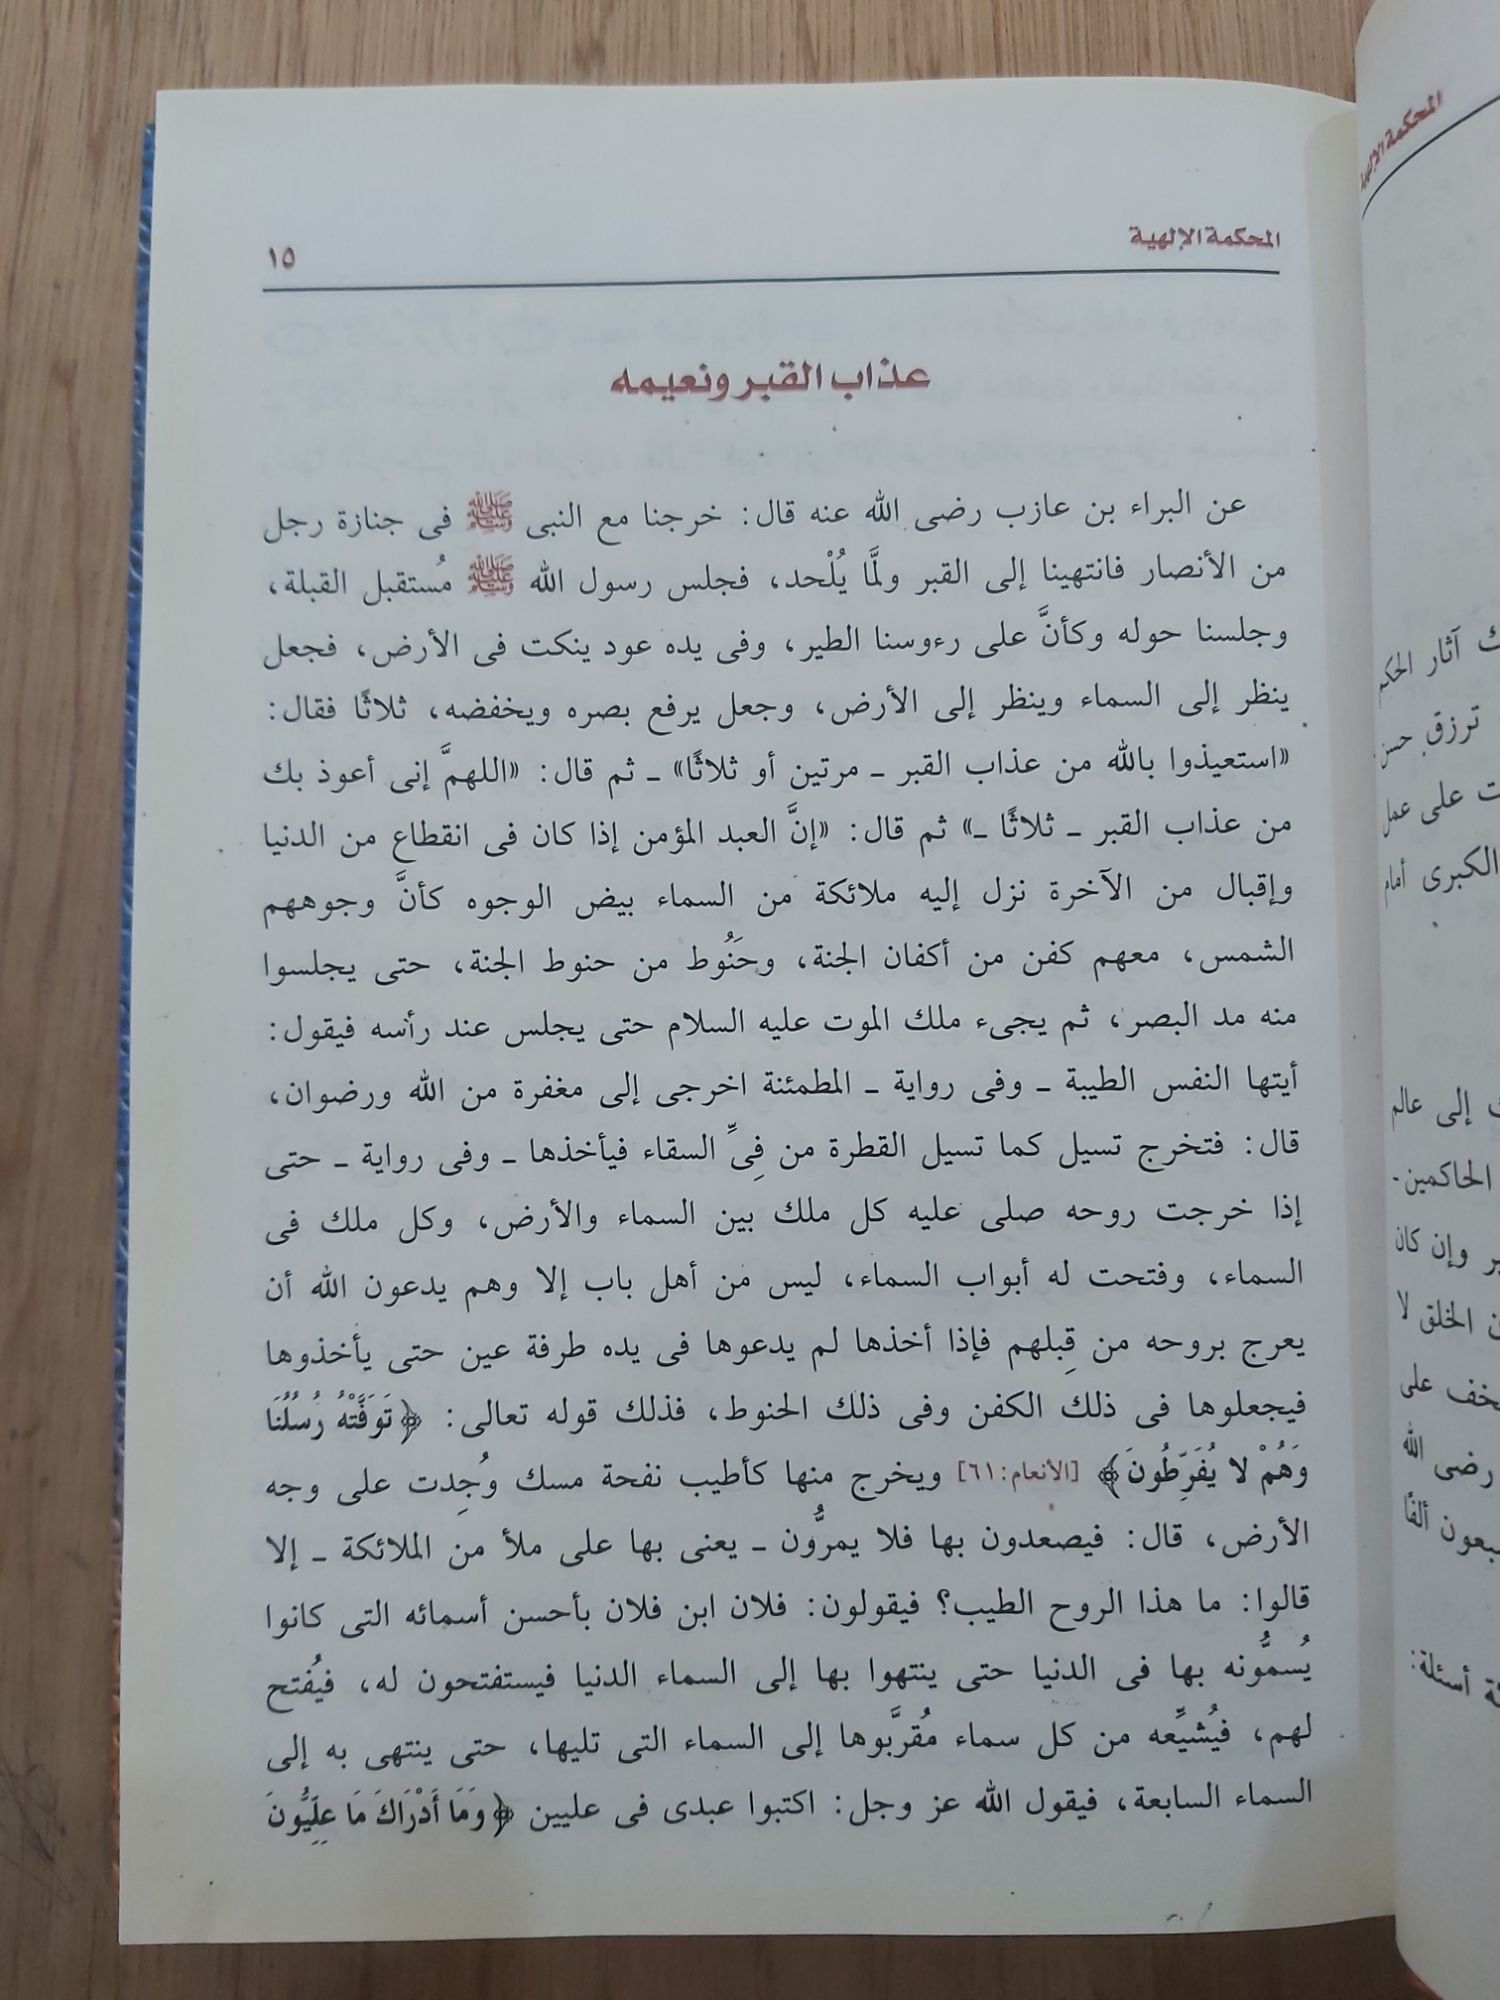 المحكمة الإلهية
١٥
عذاب القبر ونعيمه
عن البراء بن عازب رضى الله عنه قال: خرجنا مع النبى ﷺ فى جنازة رجل
من الأنصار فانتهينا إلى القبر ولمَّا يُلْحد، فجلس رسول الله ﷺ مُستقبل القبلة،
وجلسنا حوله وكأنَّ على رءوسنا الطير، وفى يده عود ينكت فى الأرض، فجعل
ينظر إلى السماء وينظر إلى الأرض، وجعل يرفع بصره ويخفضه، ثلاثًا فقال:
«استعيذوا بالله من عذاب القبر ـ مرتين أو ثلاثًا» ـ ثم قال: «اللهمَّ إنى أعوذ بك
من عذاب القبر ـ ثلاثًا ـ» ثم قال: «إنَّ العبد المؤمن إذا كان فى انقطاع من الدنيا
وإقبال من الآخرة نزل إليه ملائكة من السماء بيض الوجوه كأنَّ وجوههم
الشمس، معهم كفن من أكفان الجنة، وحَنُوط من حنوط الجنة، حتى يجلسوا
منه مد البصر، ثم يجىء ملك الموت عليه السلام حتى يجلس عند رأسه فيقول:
أيتها النفس الطيبة ـ وفى رواية ـ المطمئنة اخرجى إلى مغفرة من الله ورضوان،
قال: فتخرج تسيل كما تسيل القطرة من فِىِّ السقاء فيأخذها ـ وفى رواية ـ حتى
إذا خرجت روحه صلى عليه كل ملك بين السماء والأرض، وكل ملك فى
السماء، وفتحت له أبواب السماء، ليس من أهل باب إلا وهم يدعون الله أن
يعرج بروحه من قِبلهم فإذا أخذها لم يدعوها فى يده طرفة عين حتى يأخذوها
فيجعلوها فى ذلك الكفن وفى ذلك الحنوط، فذلك قوله تعالى: ﴿تَوَفَّتْهُ رُسُلُنَا
وَهُمْ لا يُفَرِّطُونَ﴾ [الأنعام:٦١] ويخرج منها كأطيب نفحة مسك وُجِدت على وجه
الأرض، قال: فيصعدون بها فلا يمرُّون ـ يعنى بها على ملأ من الملائكة ـ إلا
قالوا: ما هذا الروح الطيب؟ فيقولون: فلان ابن فلان بأحسن أسمائه التى كانوا
يُسمُّونه بها فى الدنيا حتى ينتهوا بها إلى السماء الدنيا فيستفتحون له، فيُفتح
لهم، فيُشيِّعه من كل سماء مُقرَّبوها إلى السماء التى تليها، حتى ينتهى به إلى
السماء السابعة، فيقول الله عز وجل: اكتبوا عبدى فى عليين ﴿وَمَا أَدْرَاكَ مَا عِلِّيُّونَ
المحكمة الإلهية
آثار الحكم
ترزق حسن
على عمل
الكبرى أمام
إلى عالم
الحاكمين.
وإن كان
الخلق لا
على
رضى الله
ألفًا
أسئلة: